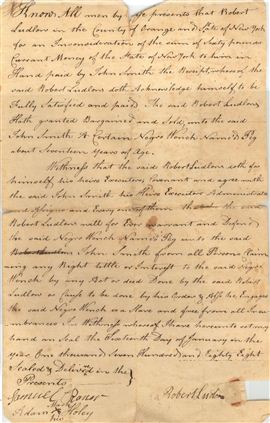 Know All men by these presents that Robert
Ludlow in the County of Orange and State of New York
for an Inconsideration of the sum of Sixty pounds
Currant Money of the State of New York to him in
Hand paid by John Smith the Receipt whereof the
said Robert Ludlow doth Acknowledge himself to be
Fully Satisfied and paid The said Robert Ludlow
Hath granted Bargained and Sold unto the said
John Smith A Certain Negro Wench Named Peg
about Seventeen years of Age
Withness that the said Robert Ludlow doth for
himself his heirs Executors Covenant and agree with
the said John Smith his Heirs Executor Administrator
and assigns and Every one of them the said
Robert Ludlow will for Ever warrant and Defend
the said Negro Wench Named Peg unto the said
John Smith from all Persons Claim
ing any Right title or Interest to the said Negro
Wench by any Act or deed Done by the said Robert
Ludlow or Caused to be done by his Order & Also he Engages
the said Negro Wench as a Slave and free from all In
cumbrances In Withness whereof I have hereunto set my
hand an Seal the Sixteenth Day of January in the
year One thousand Seven Hundred and Eighty Eight
Sealed & Deliv'd in the
Presents
Samuel
Adam his Mark
Robert Ludlow